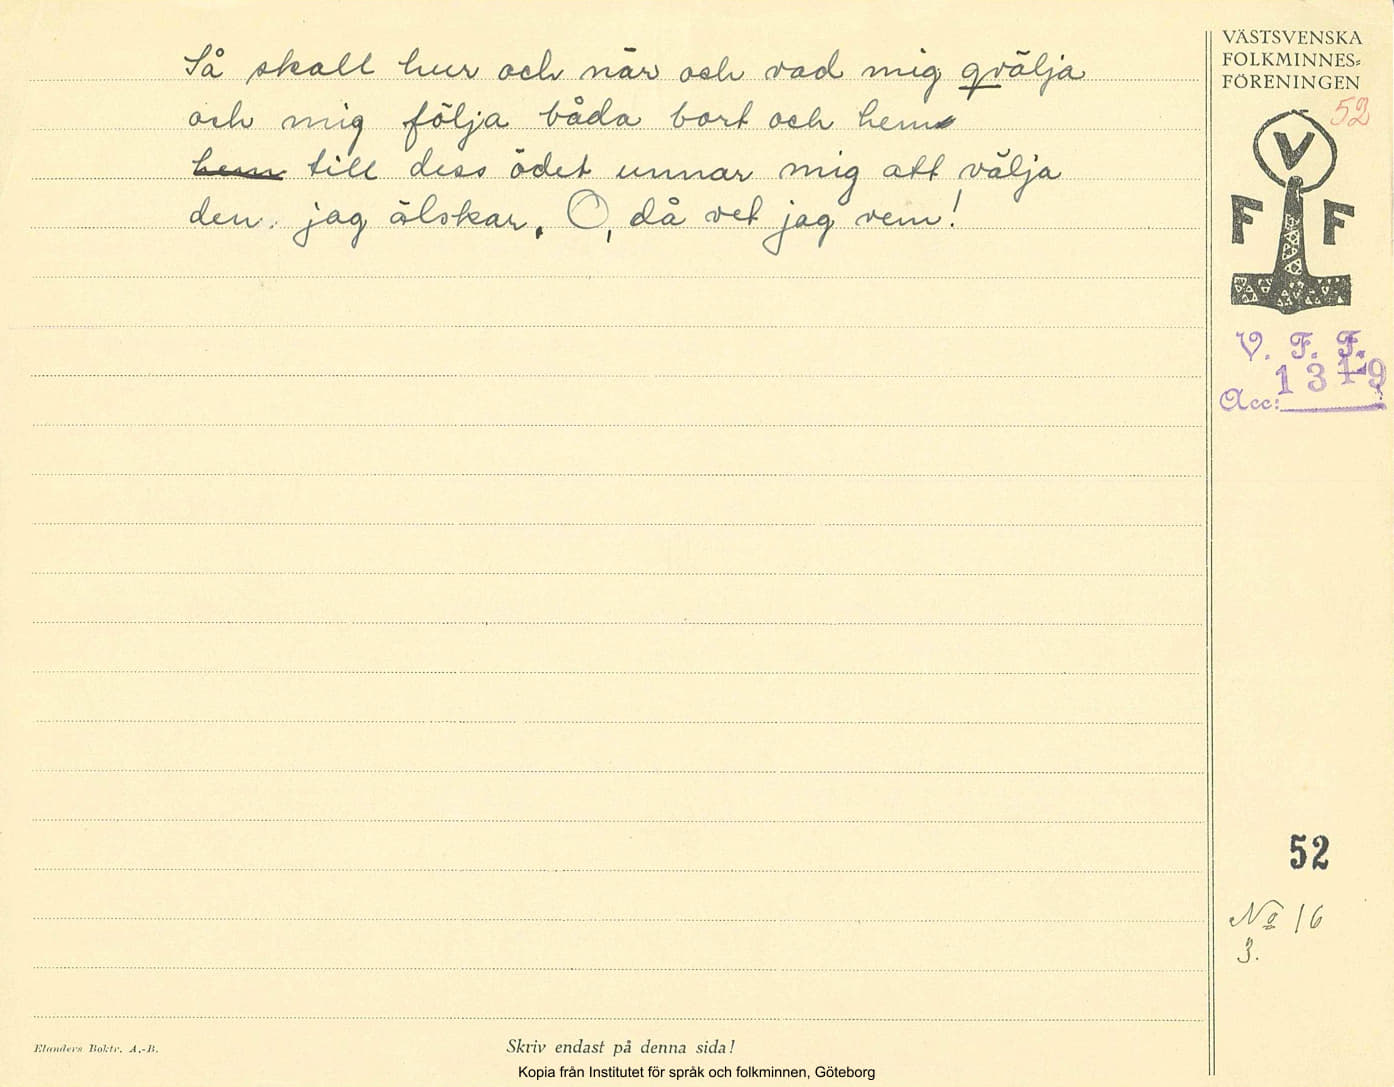 Så skall hur och när och vad mig qvälja
och mig följa båda bort och hem
hem till dess ödet unnar mig att välja
den jag älskar. O, då vet jag vem!
VÄSTSVENSKA
FOLKMINNES=
FÖRENINGEN
52
V
F F
V. F. F.
Acc:
52
No 16
3.
Elanders Boktr. A.-B.
Skriv endast på denna sida!
Kopia från Institutet för språk och folkminnen, Göteborg